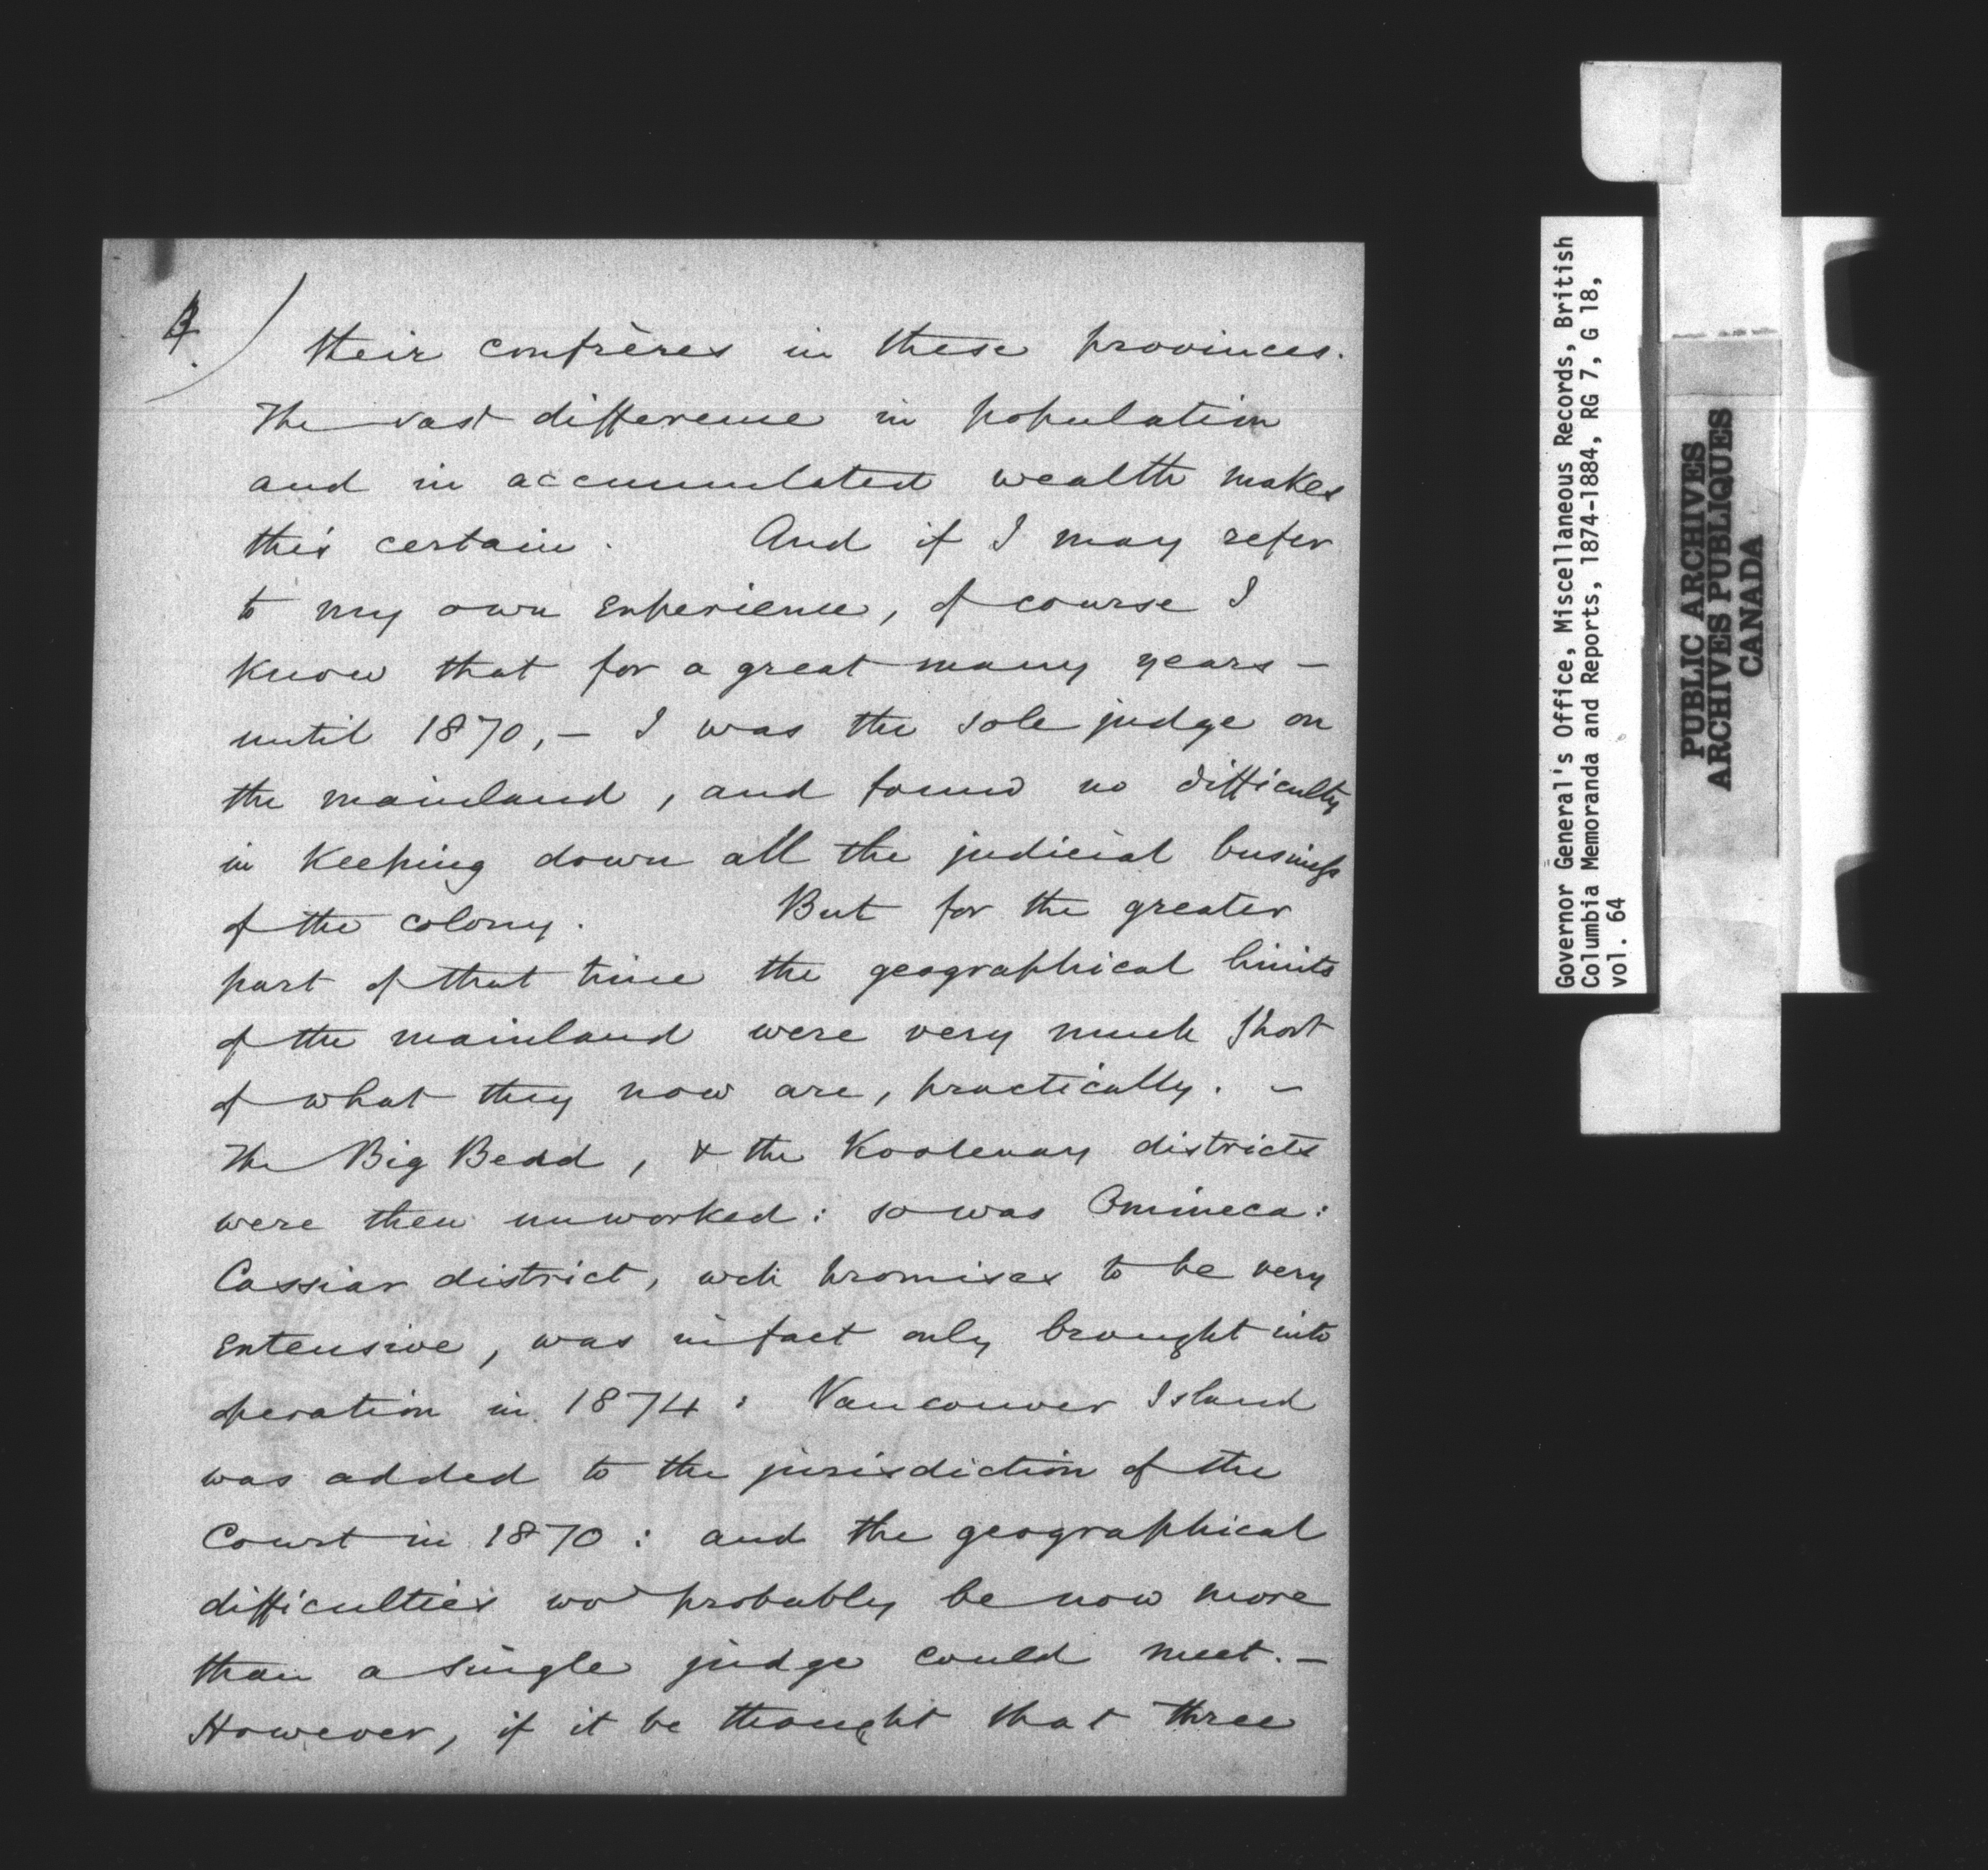 4.)
their confrères in these provinces.
The vast difference in population
and in accumulated wealth makes
this certain. And if I may refer
to my own experience, of course I
know that for a great many years –
until 1870, – I was the sole judge on
the mainland, and found no difficulty
in keeping down all the judicial business
of the colony. But for the greater
part of that time the geographical limits
of the mainland were very much short
of what they now are, practically. –
The Big Bend, & the Kootenay districts
were then unworked: so was Omineca:
Cassiar district, wch promises to be very
extensive, was in fact only brought into
operation in 1874: Vancouver Island
was added to the jurisdiction of the
Court in 1870: and the geographical
difficulties wd probably be now more
than a single judge could meet. –
However, if it be thought that three
Governor General's Office, Miscellaneous Records, British
Columbia Memoranda and Reports, 1874-1884, RG 7, G 18,
vol. 64
PUBLIC ARCHIVES
ARCHIVES PUBLIQUES
CANADA